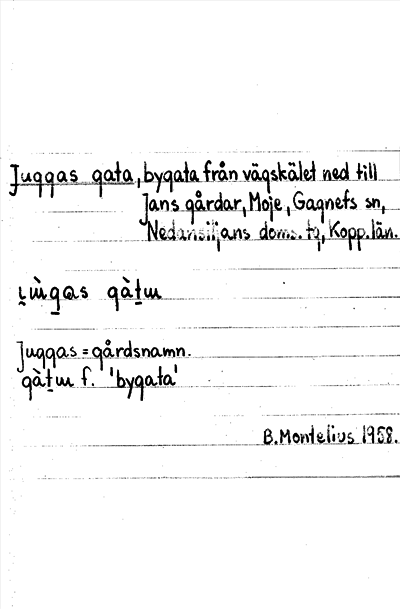 Juggas gata, bygata från vägskälet ned till
Jans gårdar, Moje, Gagnefs sn,
Nedansiljans doms. tg, Kopp. län.
gàt̲ɯ
Juggas = gårdsnamn.
gàt̲ɯ f. 'bygata'
B. Montelius 1958.